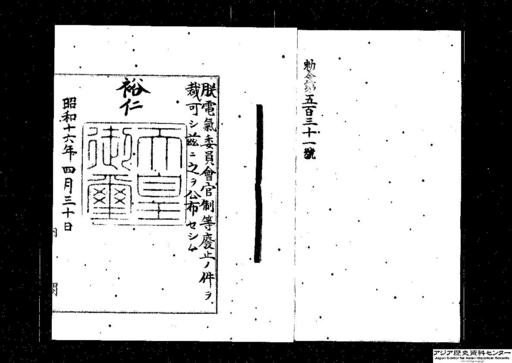 勅令第五百三十一號
朕電氣委員會官制等廢止ノ件ヲ
裁可シ茲ニ之ヲ公布セシム
裕仁
天皇
御璽
昭和十六年四月三十日
内閣
アジア歴史資料センター
Japan Center for Asian Historical Records